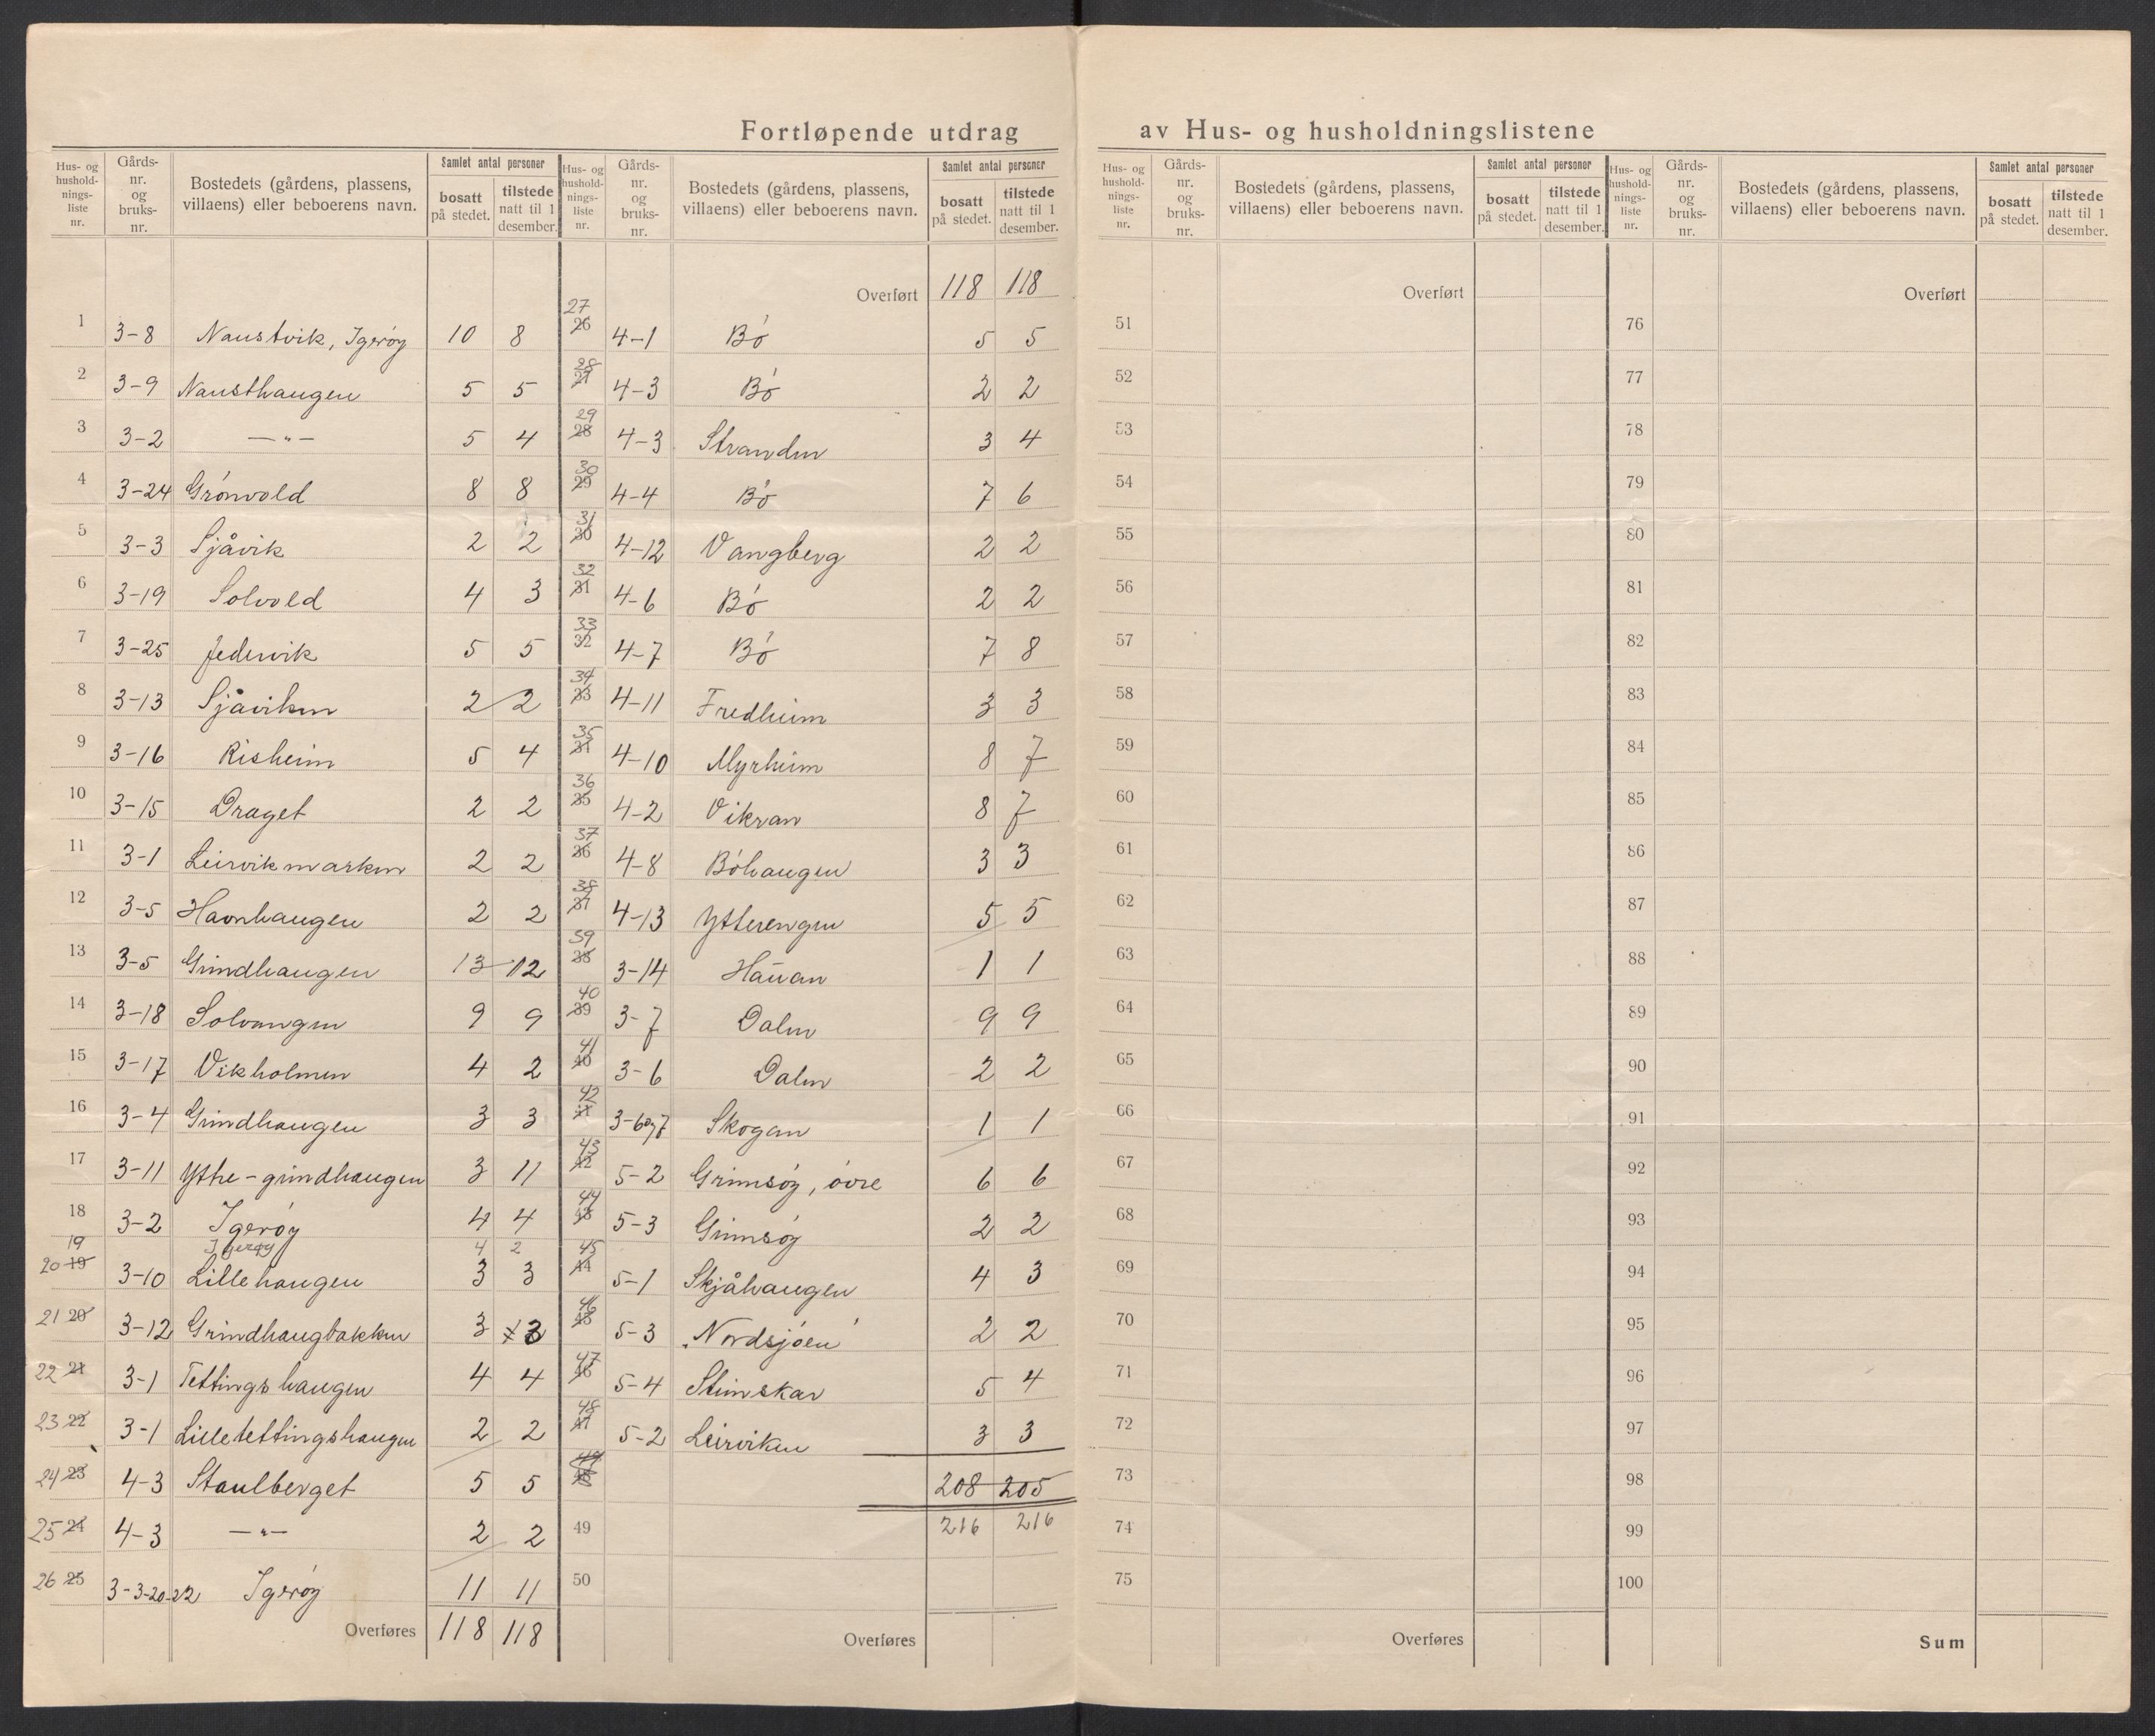 Fortløpende utdrag av Hus- og husholdningslistene
Hus- og husholdnings-liste nr. | Gårds-nr. og bruks-nr. | Bostedets (gårdens, plassens, villaens) eller beboerens navn. | Samlet antal personer | bosatt på stedet. | tilstede natt til 1 desember.
1 3-8 Naustvik, Igerøy 10 8
2 3-9 Nausthaugen 5 5
3 3-2 —"— 5 4
4 3-24 Grónvold 8 8
5 3-3 Sjåvik 2 2
6 3-19 Solvold 4 3
7 3-25 Jedervik 5 5
8 3-13 Sjåviken 2 2
9 3-16 Risheim 5 4
10 3-15 Draget 2 2
11 3-1 Leirvikmarken 2 2
12 3-5 Havnhaugen 2 2
13 3-5 Grindhaugen 13 12
14 3-18 Solvangen 9 9
15 3-17 Vikholmen 4 2
16 3-4 Grindhaugen 3 3
17 3-11 Ytre-grindhaugen 3 11
18 3-2 Igerøy 4 4
19 Igerøy 4 2
20 19 3-10 Lillehaugen 3 3
21 20 3-12 Grindhaugbakken 3 3
22 21 3-1 Tettingshaugen 4 4
23 22 3-1 Lilletettingshaugen 2 2
24 23 4-3 Staulberget 5 5
25 24 4-3 —"— 2 2
26 25 3-3-20-22 Igerøy 11 11
Overføres 118 118
Hus- og husholdnings-liste nr. | Gårds-nr. og bruks-nr. | Bostedets (gårdens, plassens, villaens) eller beboerens navn. | Samlet antal personer | bosatt på stedet. | tilstede natt til 1 desember.
Overført 118 118
27 26 4-1 Bó 5 5
28 27 4-3 Bó 2 2
29 28 4-3 Stranden 3 4
30 29 4-4 Bó 7 6
31 30 4-12 Vangberg 2 2
32 31 4-6 Bó 2 2
33 32 4-7 Bó 7 8
34 33 4-11 Fredheim 3 3
35 34 4-10 Myrheim 8 7
36 35 4-2 Vikran 8 7
37 36 4-8 Bóhaugen 3 3
38 37 4-13 Ytterengen 5 5
39 38 3-14 Hauan 1 1
40 39 3-7 Dalen 9 9
41 40 3-6 Dalen 2 2
42 41 3-6og7 Skogan 1 1
43 42 5-2 Grimsóy, óvre 6 6
44 43 5-3 Grimsóy 2 2
45 44 5-1 Skjåhaugen 4 3
46 45 5-3 "Nordsjóen" 2 2
47 46 5-4 Steinskar 5 4
48 47 5-2 Leirviken 3 3
49 48 208 205
49 216 216
50
Overføres
Hus- og husholdnings-liste nr. | Gårds-nr. og bruks-nr. | Bostedets (gårdens, plassens, villaens) eller beboerens navn. | Samlet antal personer | bosatt på stedet. | tilstede natt til 1 desember.
Overført
51
52
53
54
55
56
57
58
59
60
61
62
63
64
65
66
67
68
69
70
71
72
73
74
75
Overføres
Hus- og husholdnings-liste nr. | Gårds-nr. og bruks-nr. | Bostedets (gårdens, plassens, villaens) eller beboerens navn. | Samlet antal personer | bosatt på stedet. | tilstede natt til 1 desember.
Overført
76
77
78
79
80
81
82
83
84
85
86
87
88
89
90
91
92
93
94
95
96
97
98
99
100
Sum